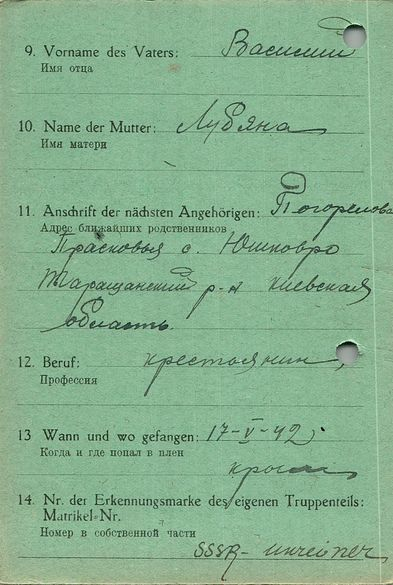 9. Vorname des Vaters: Василий
Имя отца
10. Name der Mutter: Лубяна
Имя матери
11. Anschrift der nächsten Angehörigen: Погорелова
Адрес ближайших родственников
Прасковья с. Юшков
Таращанский р-н Киевская
область.
12. Beruf: крестьянин,
Профессия
13 Wann und wo gefangen: 17-V-42
Когда и где попал в плен
крым
14. Nr. der Erkennungsmarke des eigenen Truppenteils:
Matrikel-Nr.
Номер в собственной части
SSSR-